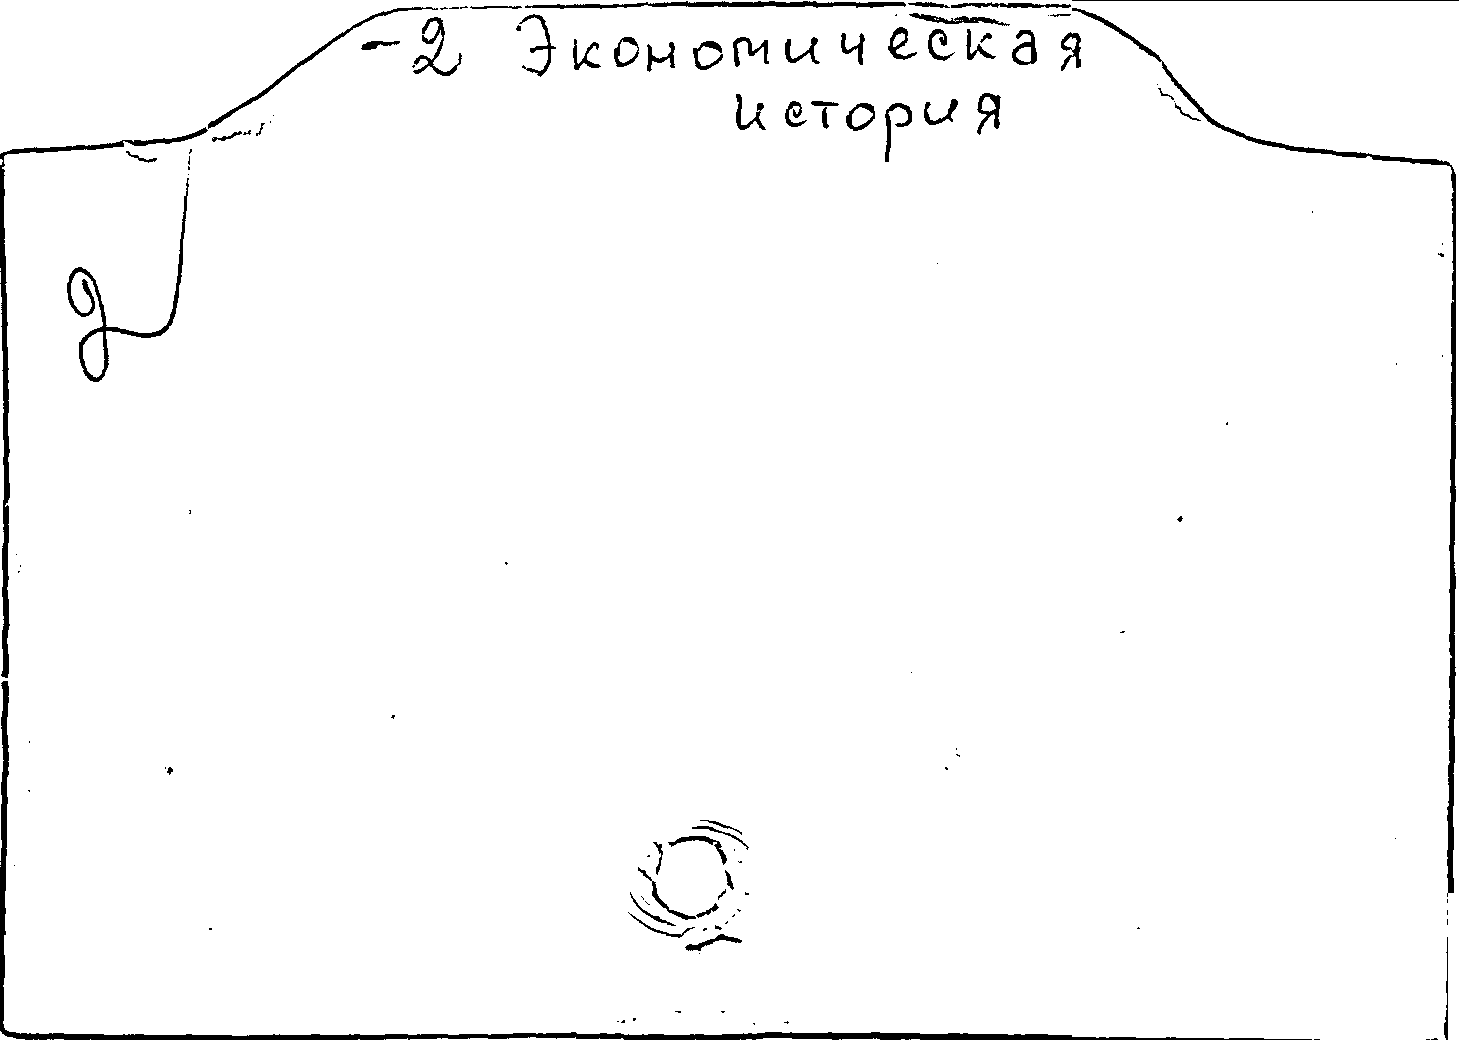 -2 Экономическая
история